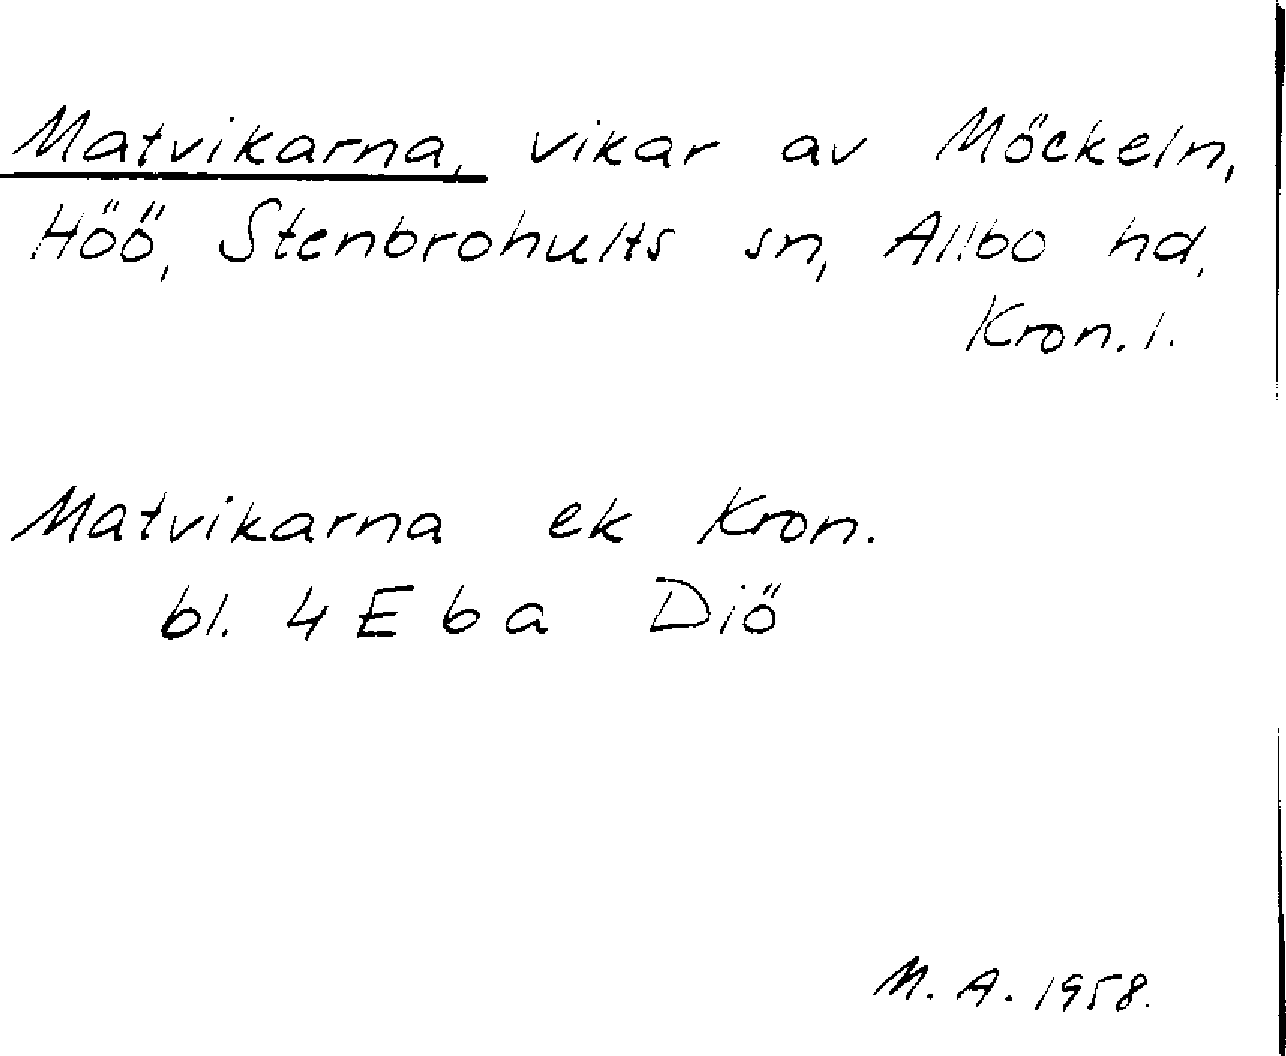 Matvikarna, vikar av Möckeln,
Höö, Stenbrohults sn, Allbo hd,
Kron. l.
Matvikarna ek Kron.
bl. 4 E b a Diö
M. A. 1958.